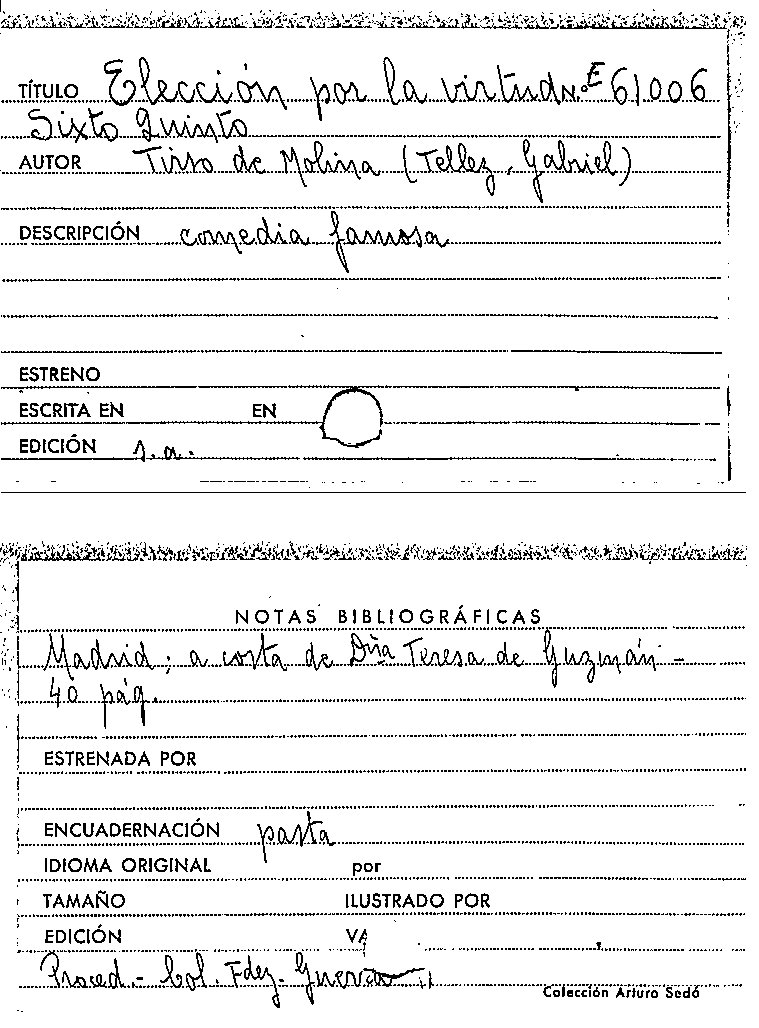 TÍTULO Elección por la virtud N.º E 61006
Sixto Quinto
AUTOR Tirso de Molina (Tellez, Gabriel)
DESCRIPCIÓN comedia famosa
ESTRENO
ESCRITA EN EN
EDICIÓN s.a.
NOTAS BIBLIOGRÁFICAS
Madrid; a costa de Dña Teresa de Guzmán -
40 pág.
ESTRENADA POR
ENCUADERNACIÓN pasta
IDIOMA ORIGINAL por
TAMAÑO ILUSTRADO POR
EDICIÓN
Proced.- Col. Fdez- Guerra
Colección Arturo Sedó